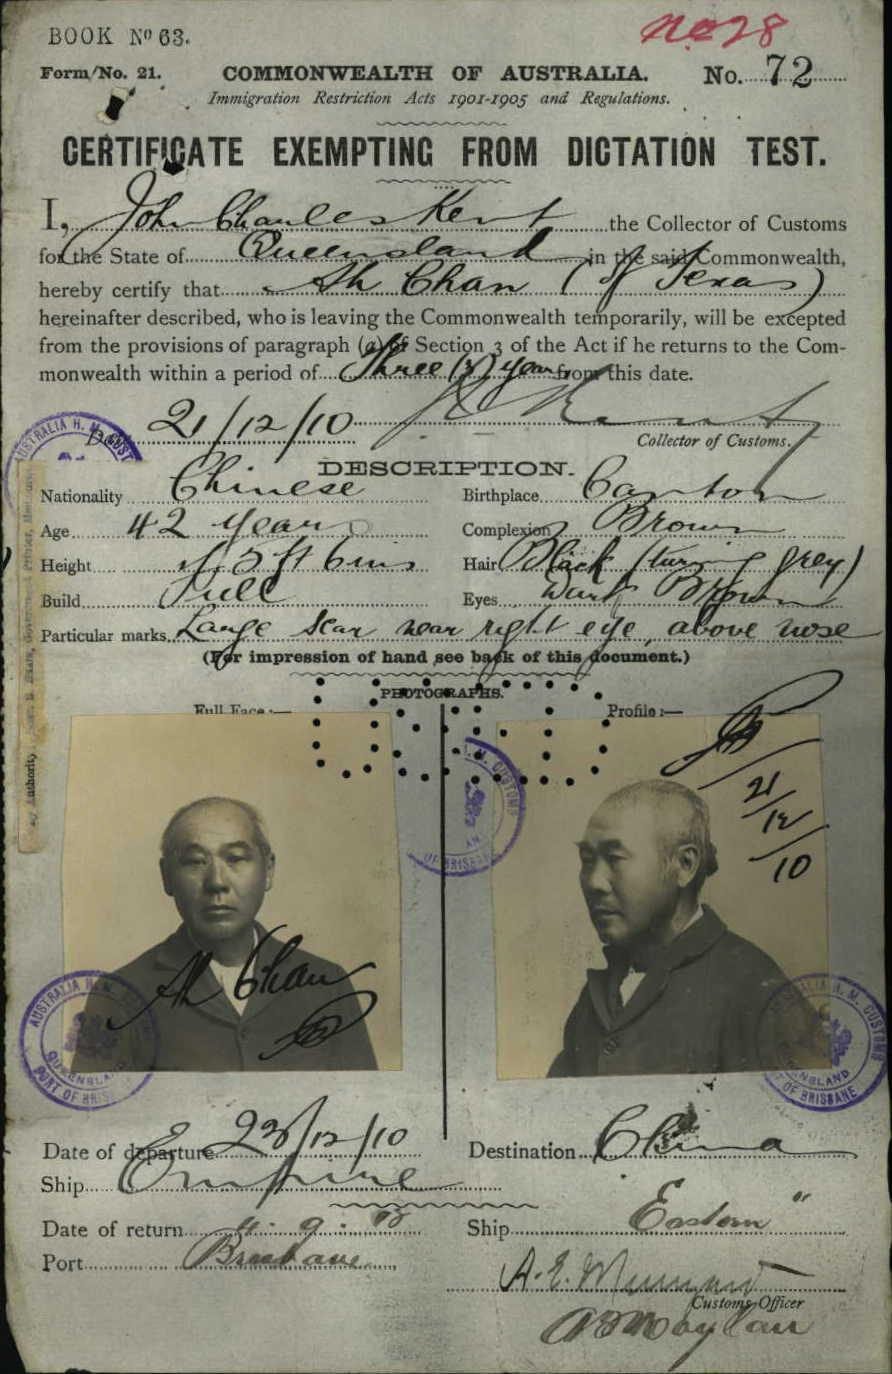 BOOK Nº 63.
No 28
Form/No. 21. COMMONWEALTH OF AUSTRALIA. No. 72
Immigration Restriction Acts 1901-1905 and Regulations.
CERTIFICATE EXEMPTING FROM DICTATION TEST.
I, John Charles Kent the Collector of Customs
for the State of Queensland in the said Commonwealth,
hereby certify that Ah Chan (of Texas)
hereinafter described, who is leaving the Commonwealth temporarily, will be excepted
from the provisions of paragraph (a) of Section 3 of the Act if he returns to the Com-
monwealth within a period of Three (3) years from this date.
Date 21/12/10
Collector of Customs.
DESCRIPTION.
Nationality Chinese Birthplace Canton
Age 42 years Complexion Brown
Height 5 ft 6 ins Hair Black (turning grey)
Build Full Eyes Dark Brown
Particular marks Large scar near right eye, above nose
(For impression of hand see back of this document.)
PHOTOGRAPHS.
Full Face:— Profile:—
21/12/10
Ah Chan
AUSTRALIA H. M. CUSTOMS
QUEENSLAND
PORT OF BRISBANE
Date of departure 23/12/10 Destination China
Ship Empire
Date of return Ship Eastern
Port Brisbane
Customs Officer